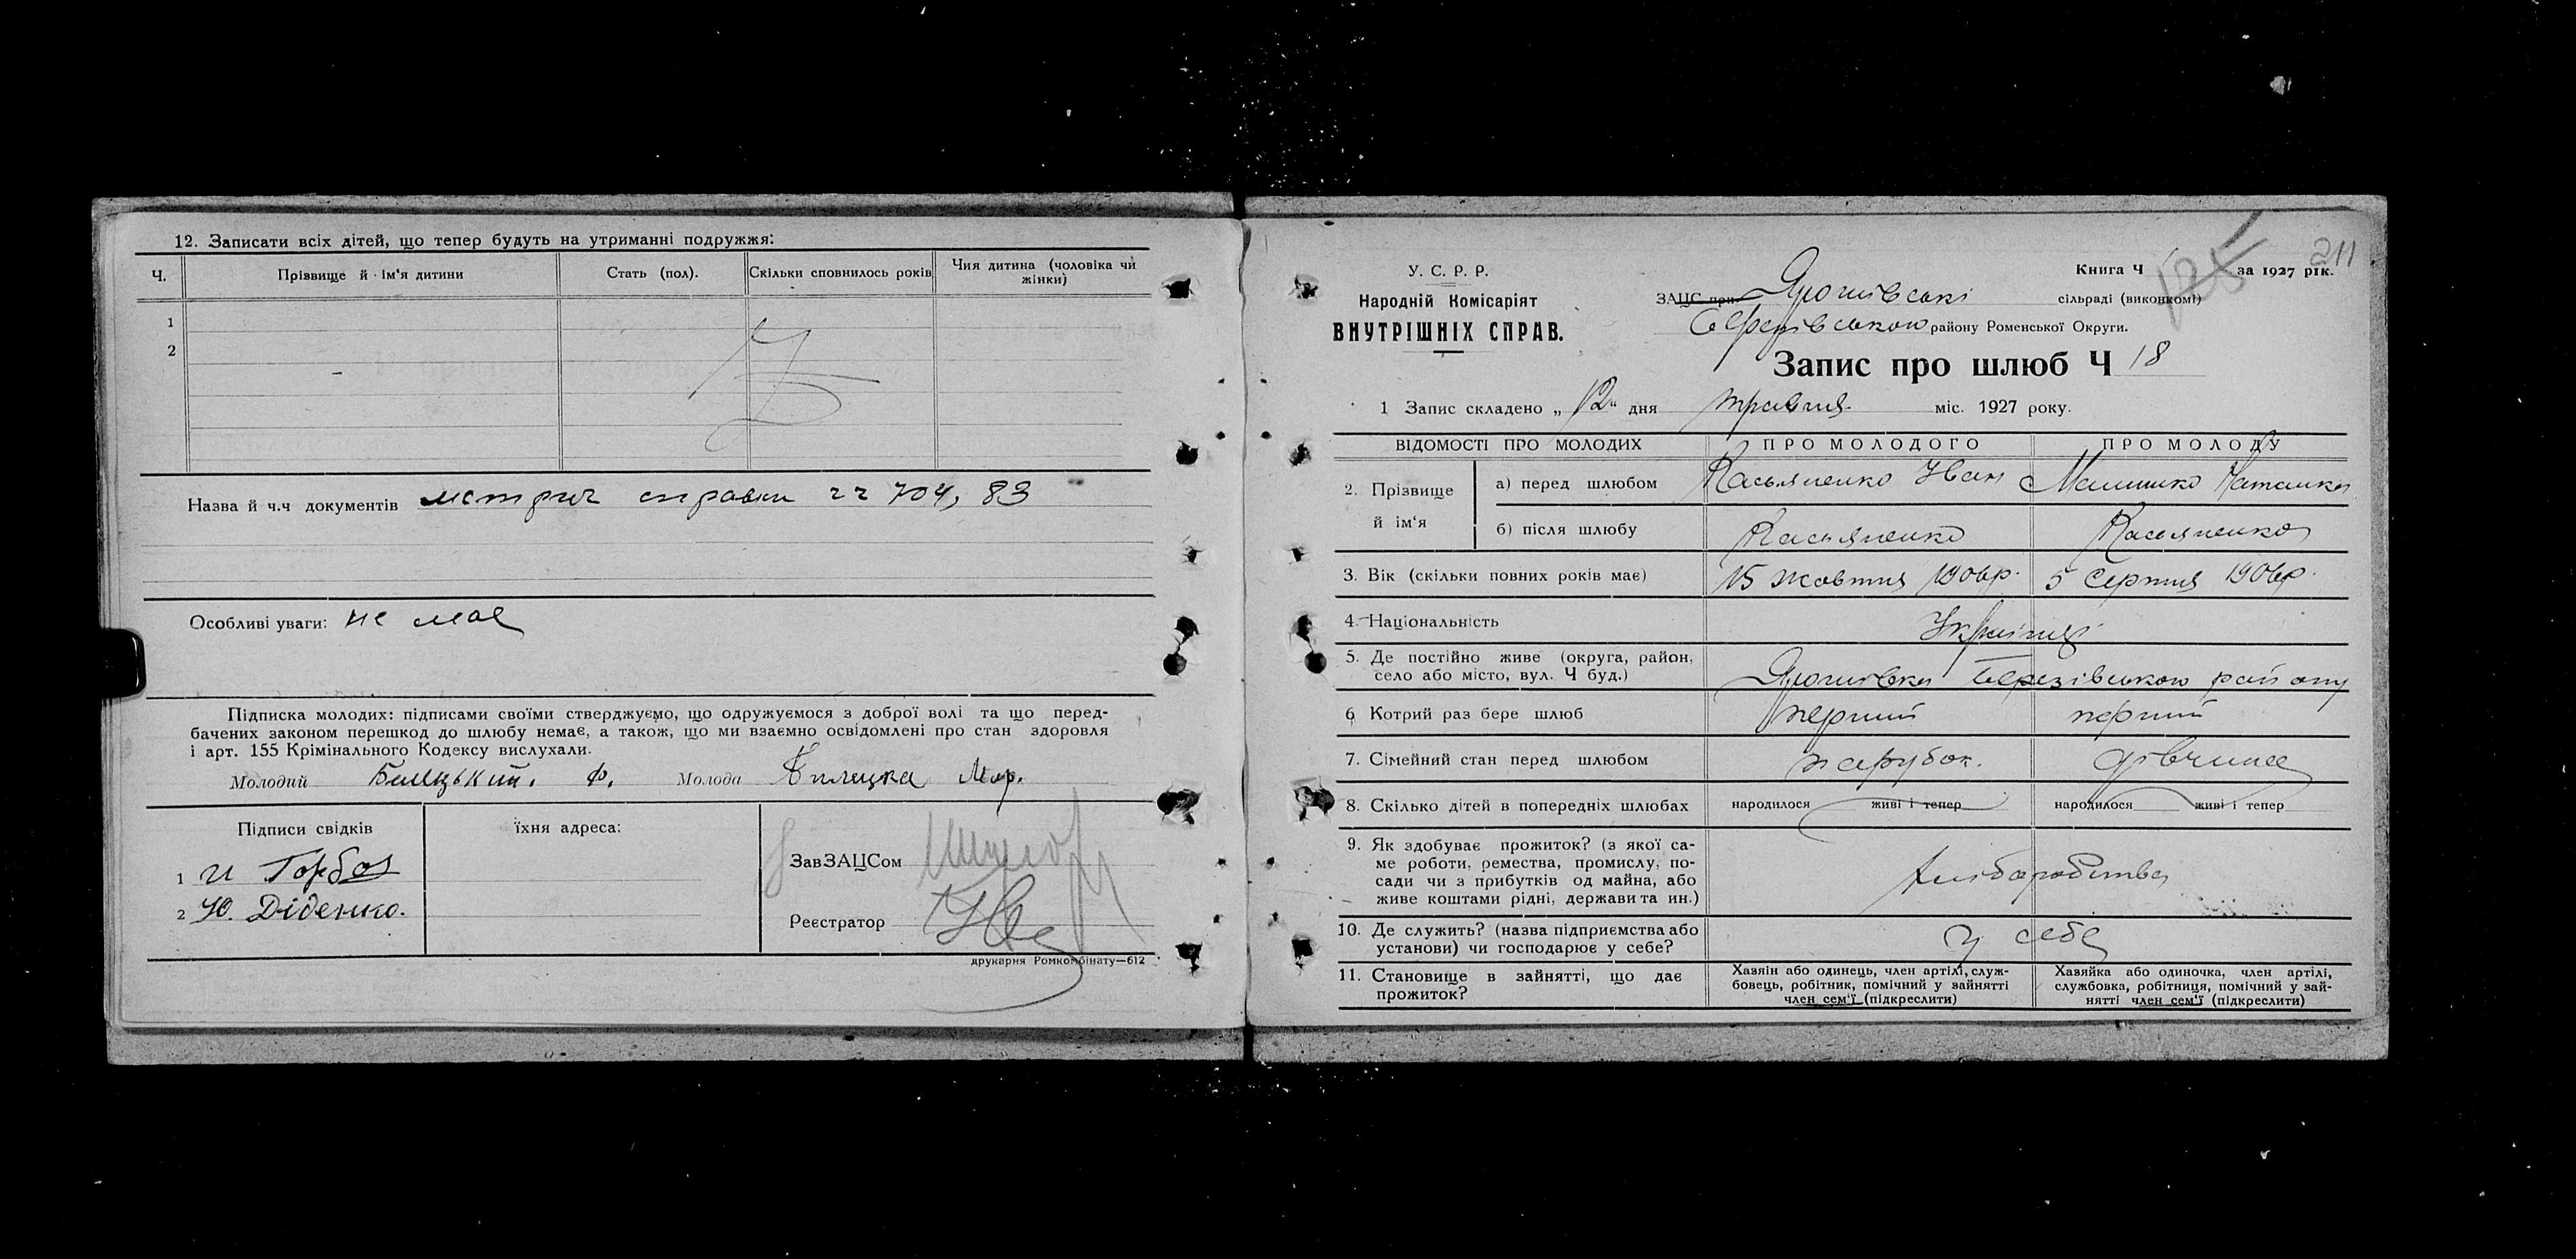 12. Записати всіх дітей, що тепер будуть на утриманні подружжя:
Ч. Прізвище й ім'я дитини Стать (пол). Скільки сповнилось років Чия дитина (чоловіка чи жінки)
1
2
Назва й ч.ч документів метрич справки чч 704, 83
Особливі уваги: не має
Підписка молодих: підписами своїми стверджуємо, що одружуємося з доброї волі та що перед-
бачених законом перешкод до шлюбу немає, а також, що ми взаємно освідомлені про стан здоровля
і арт. 155 Крімінального Кодексу вислухали.
Молодий Билецький. Ф. Молода Билецка Мар.
Підписи свідків їхня адреса:
1 И Горбов
2 Ю. Діденко.
ЗавЗАЦСом
Реєстратор
друкарня Ромкомбінату—612
211
У. С. Р. Р.
Народній Комісаріят
ВНУТРІШНІХ СПРАВ.
Книга Ч 125 за 1927 рік.
ЗАЦС при Ярошівські сільраді (виконкомі)
Березівського району Роменської Округи.
Запис про шлюб Ч 18
1 Запис складено „12" дня травня міс. 1927 року.
ВІДОМОСТІ ПРО МОЛОДИХ ПРО МОЛОДОГО ПРО МОЛОДУ
2. Прізвище й ім'я
а) перед шлюбом Касьяненко Иван Малишко Наталка
б) після шлюбу Касьяненко Касьяненко
3. Вік (скільки повних років має) 15 жовтня 1906р. 5 Серпня 1906р.
4. Національність Українці
5. Де постійно живе (округа, район,
село або місто, вул. Ч буд.) Ярошівка Березівського району
6 Котрий раз бере шлюб перший перший
7. Сімейний стан перед шлюбом парубок. дівчина
8. Скілько дітей в попередніх шлюбах народилося живі і тепер народилося живі і тепер
9. Як здобуває прожиток? (з якої са-
ме роботи, ремества, промислу, по-
сади чи з прибутків од майна, або
живе коштами рідні, держави та ин.) Хліборобства
10. Де служить? (назва підприємства або
установи) чи господарює у себе? у себе
11. Становище в зайнятті, що дає
прожиток?
Хазяін або одинець, член артілі, служ-
бовець, робітник, помічний у зайнятті
член сем'ї (підкреслити)
Хазяйка або одиночка, член артілі,
службовка, робітниця, помічний у зай-
нятті член сем'ї (підкреслити)